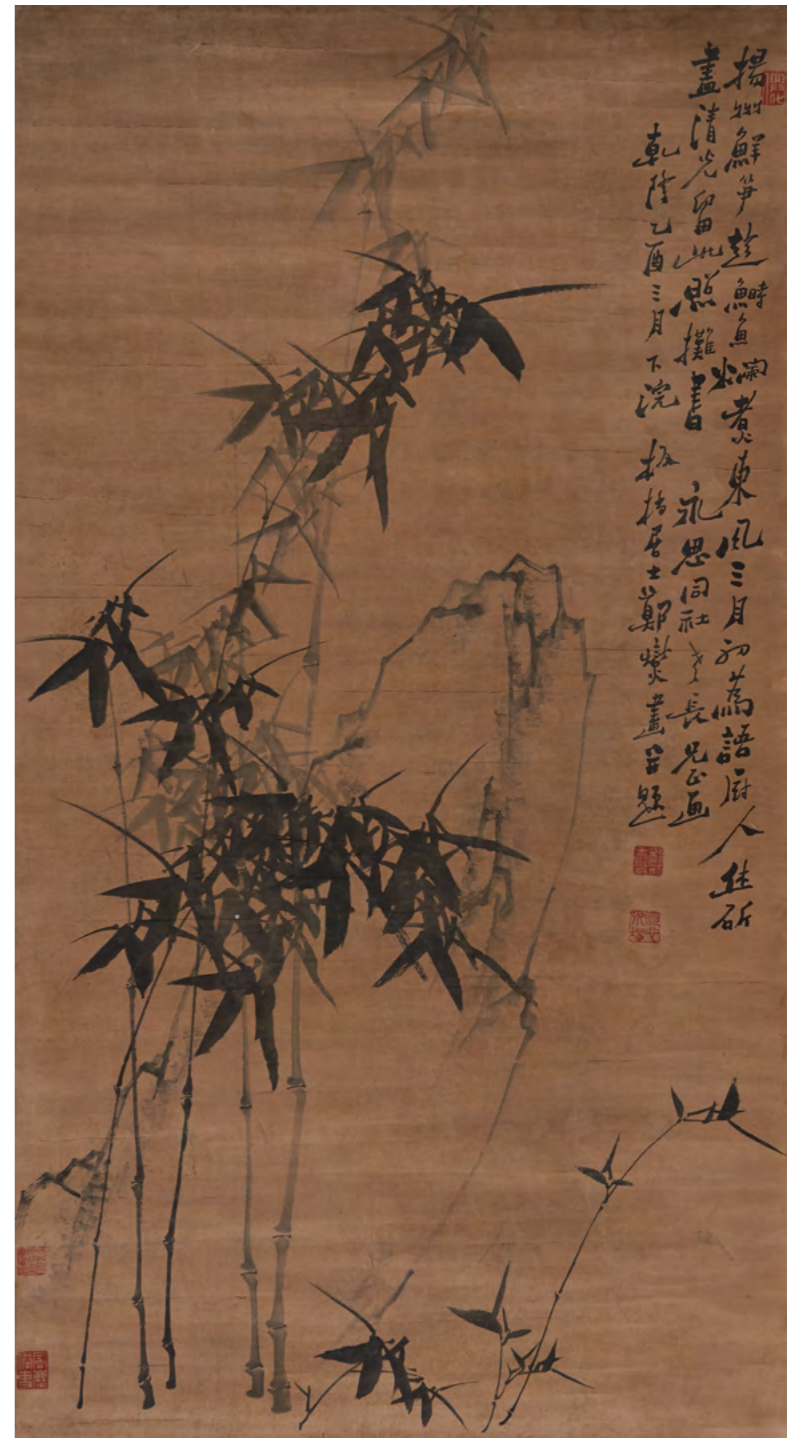 揚州鮮笋趁鰣魚爛煮東風三月初為語厨人休斫
盡清光留此照攤書 永思同社老長兄正画
乾隆乙酉三月下浣 板橋居士鄭燮畫并題